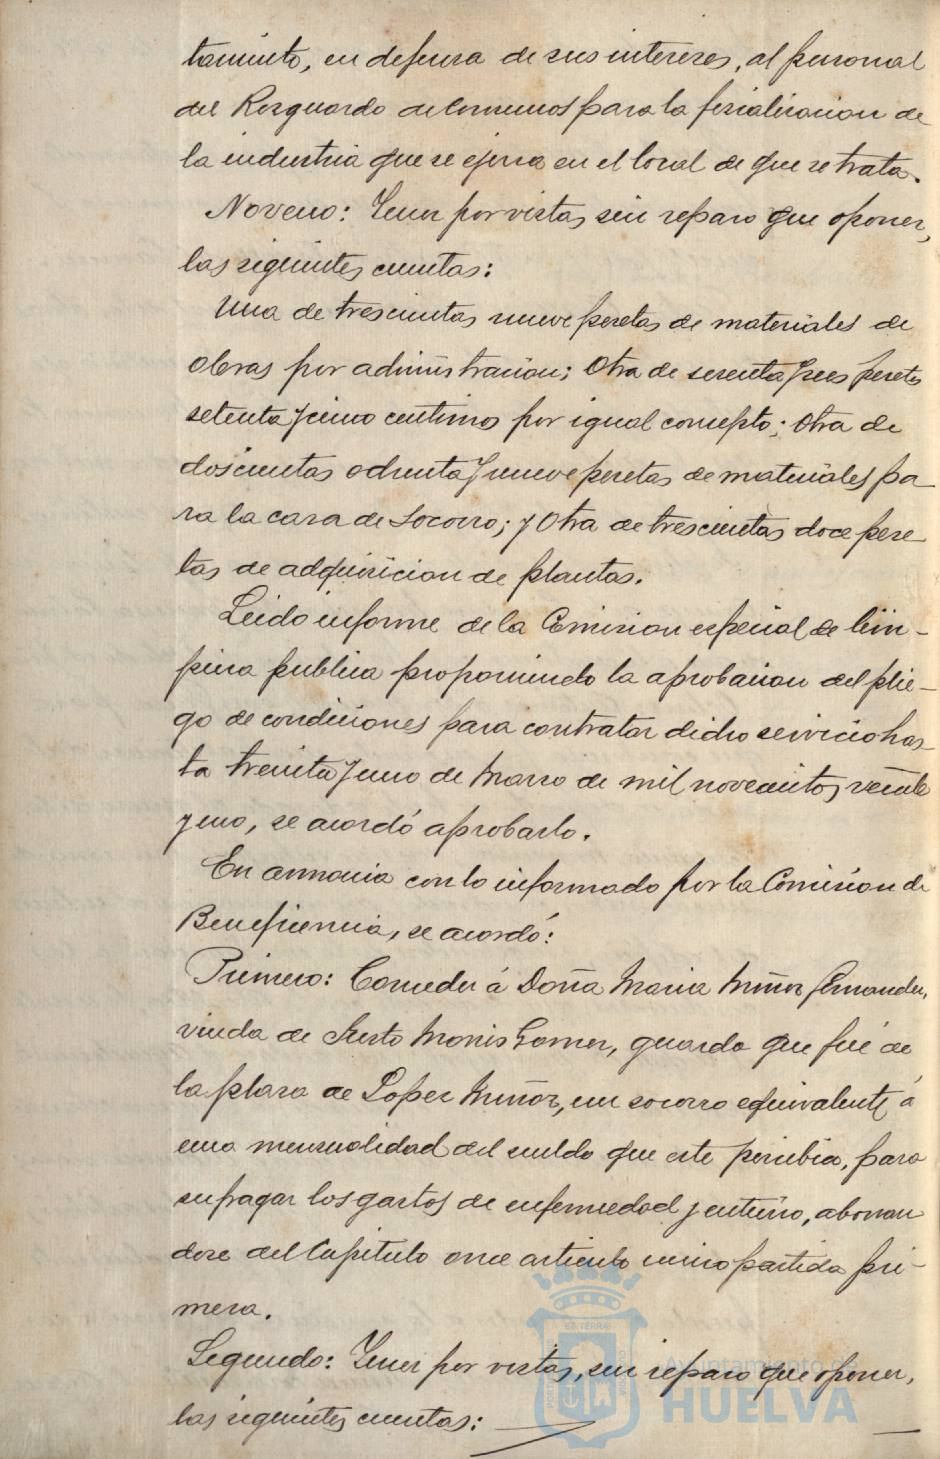 tamiento, en defensa de sus intereses, al personal
del Resguardo de Consumos para la fiscalizacion de
la industria que se ejerza en el local de que se trata.
Noveno: Tener por vistas, sin reparo que oponer,
las siguientes cuentas:
Una de trescientas nueve pesetas de materiales de
obras por administracion; Otra de sesenta y tres pesetas
setenta y cinco centimos por igual concepto; Otra de
doscientas ochenta y nueve pesetas de materiales pa-
ra la casa de Socorro; y Otra de trescientas doce pese-
tas de adquisicion de plantas.
Leido informe de la Comision especial de lim-
pieza publica proponiendo la aprobacion del plie-
go de condiciones para contratar dicho servicio has-
ta treinta y uno de Marzo de mil novecientos veinte
y uno, se acordó aprobarlo.
En armonia con lo informado por la Comision de
Beneficencia, se acordó:
Primero: Conceder á Doña Maria Muñoz Fernandez,
viuda de Justo Monis Gomez, guarda que fué de
la plaza de Lopez Muñoz, un socorro equivalente á
una mensualidad del sueldo que este percibia, para
sufragar los gastos de enfermedad y entierro, abonan
dose del Capitulo once articulo unico partida pri-
mera.
Segundo: Tener por vistas, sin reparo que oponer,
las siguientes cuentas:
Ayuntamiento de
HUELVA